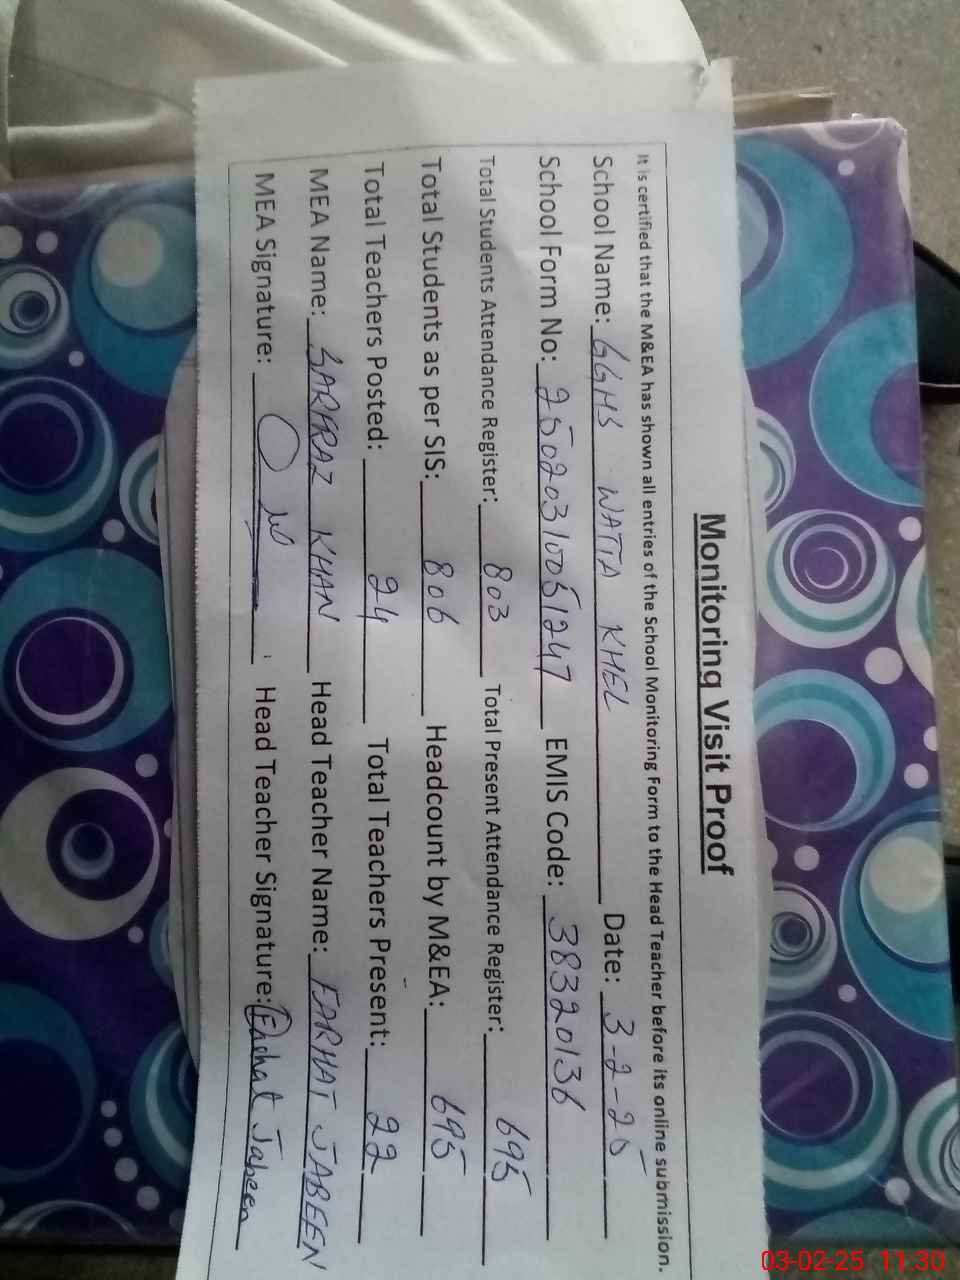 Monitoring Visit Proof
It is certified that the M&EA has shown all entries of the School Monitoring Form to the Head Teacher before its online submission.
School Name: GGHS WATTA KHEL Date: 3-2-25
School Form No: 25020310051247 EMIS Code: 38320136
Total Students Attendance Register: 803 Total Present Attendance Register: 695
Total Students as per SIS: 806 Headcount by M&EA: 695
Total Teachers Posted: 24 Total Teachers Present: 22
MEA Name: SARFRAZ KHAN Head Teacher Name: FARHAT JABEEN
MEA Signature: Head Teacher Signature: Farhat Jabeen
03-02-25 11:30